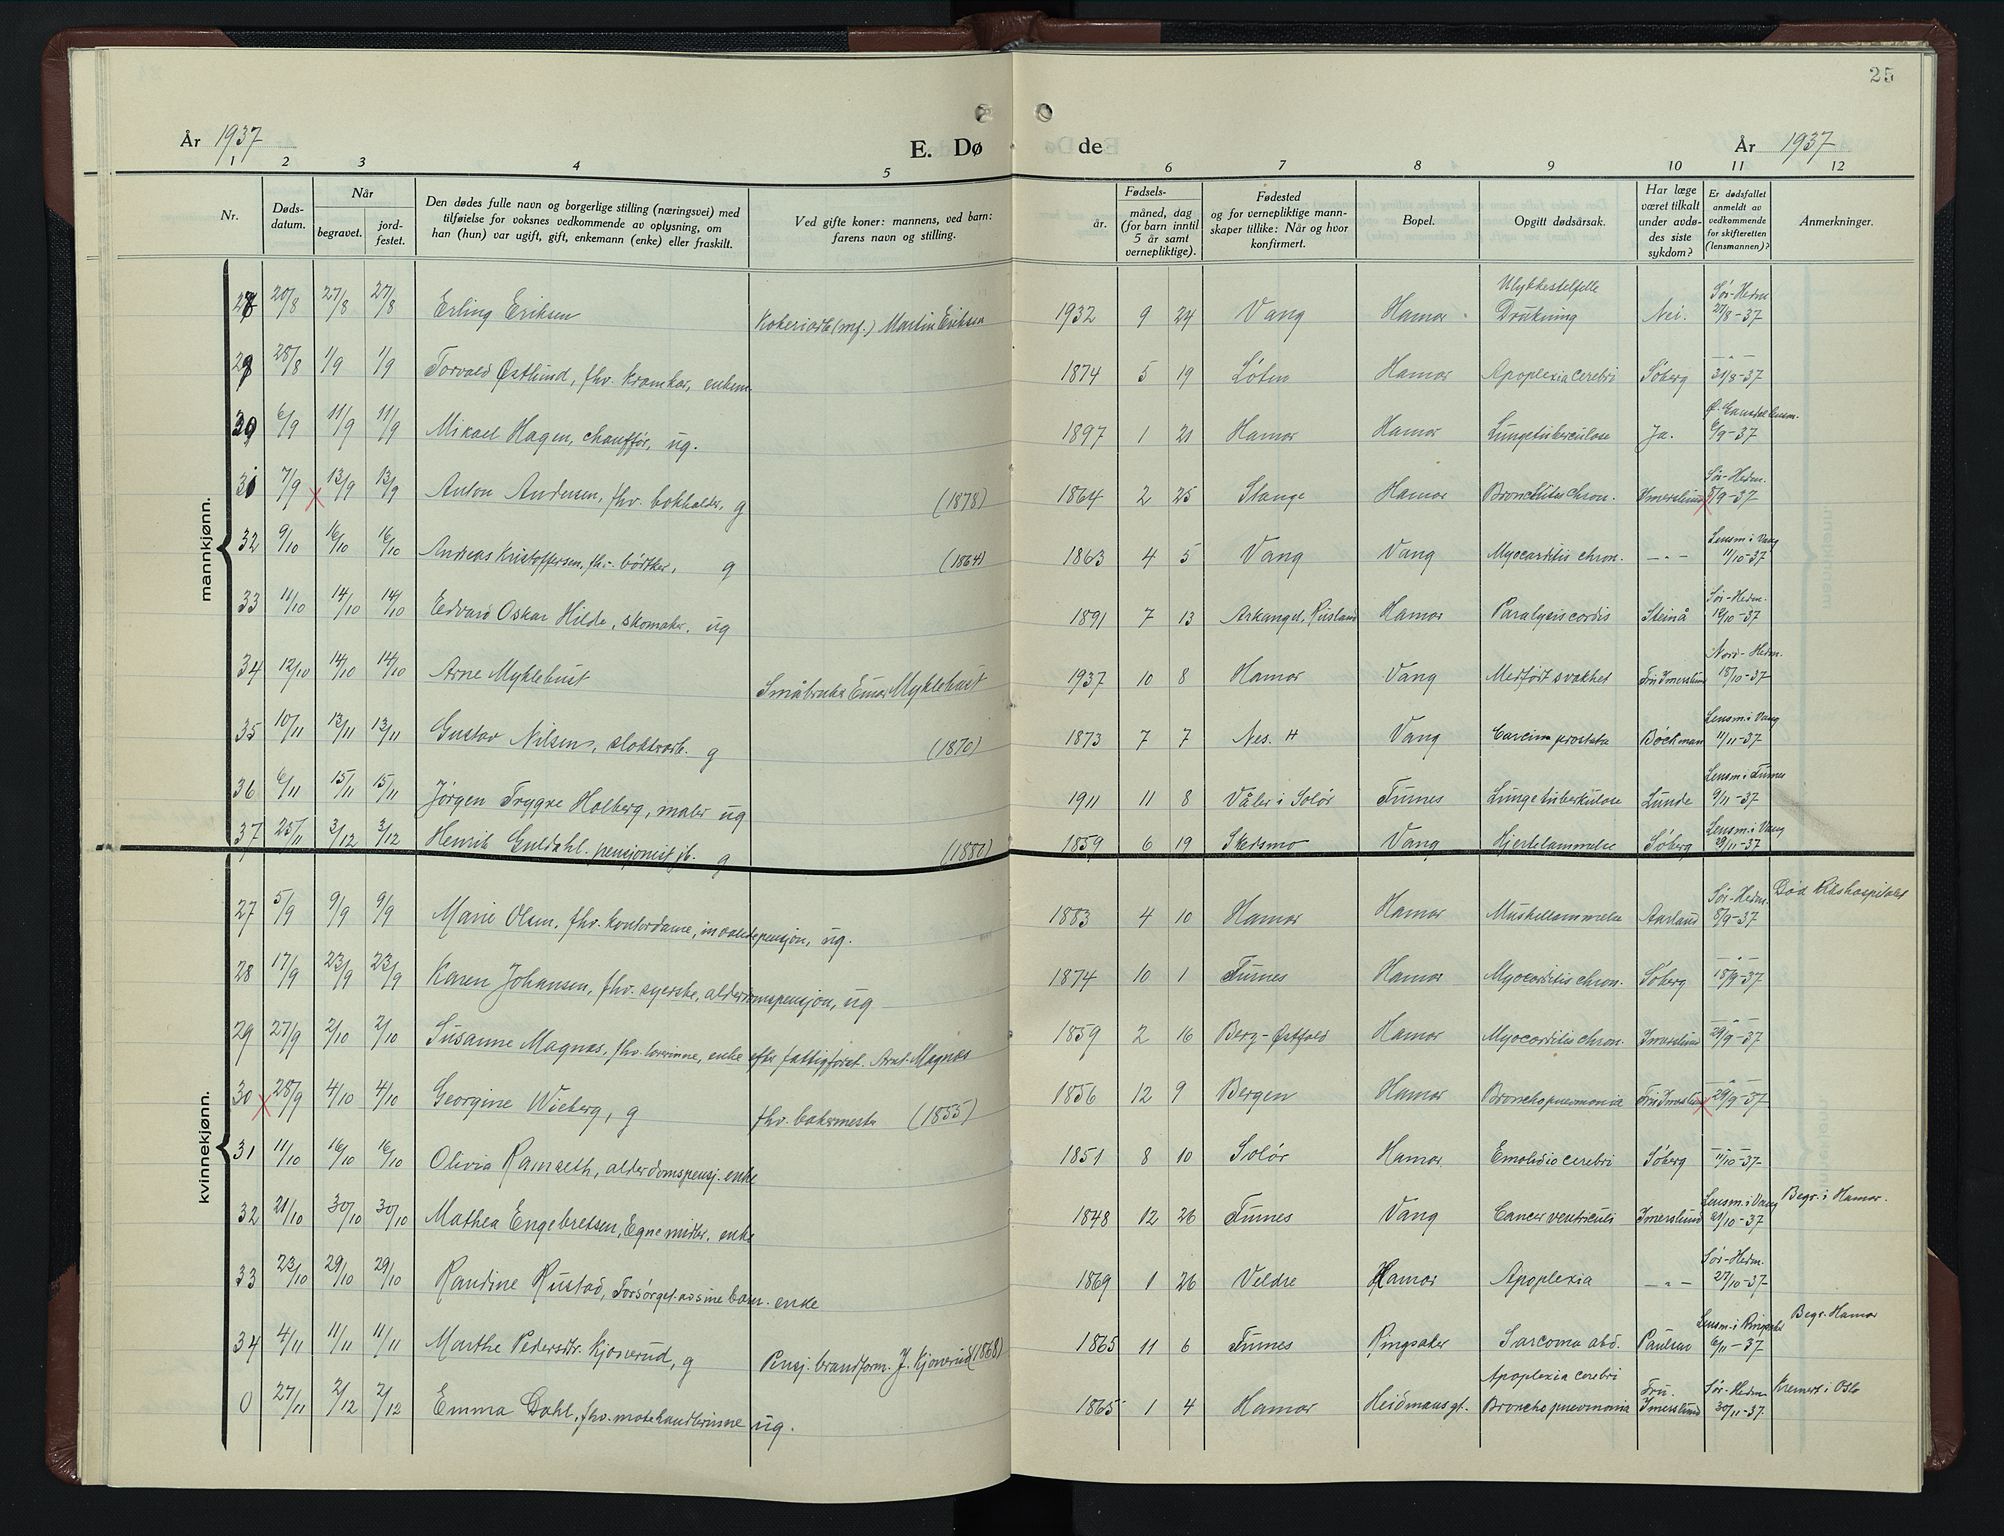 25
År 1937
E. Dø de
År 1937
1 2 3 4 5 6 7 8 9 10 11 12
Nr.
Døds-
datum.
Når
begravet.
jord-
festet.
Den dødes fulle navn og borgerlige stilling (næringsvei) med
tilføielse for voksnes vedkommende av oplysning, om
han (hun) var ugift, gift, enkemann (enke) eller fraskilt.
Ved gifte koner: mannens, ved barn:
farens navn og stilling.
Fødsels-
år.
måned, dag
(for barn inntil
5 år samt
vernepliktige).
Fødested
og for vernepliktige mann-
skaper tillike: Når og hvor
konfirmert.
Bopel.
Opgitt dødsårsak.
Har læge
været tilkalt
under avdø-
des siste
sykdom?
Er dødsfallet
anmeldt av
vedkommende
for skifteretten
(lensmannen)?
Anmerkninger.
mannkjønn.
28 20/8 27/8 27/8 Erling Eriksen Martin Eriksen 1932 9 24 Vang Hamar Ulykkestilfelle Drukning Nei. Sør-Hedm. 27/8-37
29 28/8 1/9 1/9 Torvald Østlund, fhv. kramkar, enkem. 1874 5 19 Løten Hamar Apoplexia cerebri Søberg -"- 31/8-37
30 6/9 11/9 11/9 Mikael Hagen, chauffør, ug. 1897 1 21 Hamar Hamar Lungetuberculose Ja. 6/9-37
31 7/9 13/9 13/9 Anton Andersen, fhv. bokholder, g (1878) 1864 2 25 Stange Hamar Bronchitis chron. Imerslund Sør-Hedm. 8/9-37
32 9/10 16/10 16/10 Andreas Kristoffersen, fh.- bøtker, g (1864) 1863 4 5 Vang Vang Myocarditis chron. -"- Lensm. i Vang 11/10-37
33 11/10 14/10 14/10 Edvard Oskar Hilde, skomaker. ug 1891 7 13 Arkangel, Russland Hamar Paralysis cordis Steinå Sør-Hedm. 12/10-37
34 12/10 14/10 14/10 Arne Myklebust Småbruker Einar Myklebust 1937 10 8 Hamar Vang Medfødt svakhet Fru Imerslund Nord-Hedm. 18/10-37
35 10/11 13/11 13/11 Gustav Nilsen, g (1870) 1873 7 7 Nes. H Vang Carcinom prostata Bøckman Lensm. i Vang 11/11-37
36 6/11 15/11 15/11 Jørgen Trygve Holberg, maler ug 1911 11 8 Våler i Solør Furnes Lungetuberkulose Lunde Lensm. i Furnes 9/11-37
37 25/11 3/12 3/12 Henrik Guldahl. pensjonist jb. g (1880) 1859 6 19 Skedsmo Vang Hjertelammelse Søberg Lensm. i Vang 29/11-37
kvinnekjønn.
27 5/9 9/9 9/9 Marie Olsen, fhv. kontordame, invalidepensjon, ug. 1883 4 10 Hamar Hamar Muskellammelse Aarland Sør-Hedm. 8/9-37 Død Rikshospitalet
28 17/9 23/9 23/9 Karen Johansen, fhv. syerske, alderdomspensjon, ug 1874 10 1 Furnes Hamar Myocarditis chron. Søberg -"- 18/9-37
29 27/9 2/10 2/10 Susanne Magnæs, fhv. lærerinne, enke efter fattigforst. Arnt Magnæs 1859 2 16 Berg-Østfold Hamar Myocarditis chron. Imerslund -"- 29/9-37
30 28/9 4/10 4/10 Georgine Wieberg, g fhv. bakermester (1855) 1856 12 9 Bergen Hamar Bronchopneumonia Fru Imerslund -"- 29/9-37
31 11/10 16/10 16/10 Olivia Ramseth, alderdomspensj. enke 1851 8 10 Solør Hamar Emolidio cerebri Søberg -"- 11/10-37
32 21/10 30/10 30/10 Mathea Engebretsen, Egne midler. enke 1848 12 26 Furnes Vang Cancer ventriculi Imerslund Lensm. i Vang 21/10-37 Begr. i Hamar.
33 23/10 29/10 29/10 Randine Rustad, Forsørget av sine barn. enke 1869 1 26 Veldre Hamar Apoplexia -"- Sør-Hedm. 27/10-37
34 4/11 11/11 11/11 Marthe Pedersdtr. Kjonerud, g Pensj. brandform. J. Kjonerud (1868) 1865 11 6 Furnes Ringsaker Sarcoma abd. Paulsen Lensm. i Ringsaker 6/11-37 Begr. Hamar
0 27/11 2/12 2/12 Emma Dahl, fhv. motehandlerinne ug. 1865 1 4 Hamar Heidmansgt. Apoplexia cerebri Bronchopneumonia Fru. Imerslund Sør-Hedm 30/11-37. Kremert i Oslo